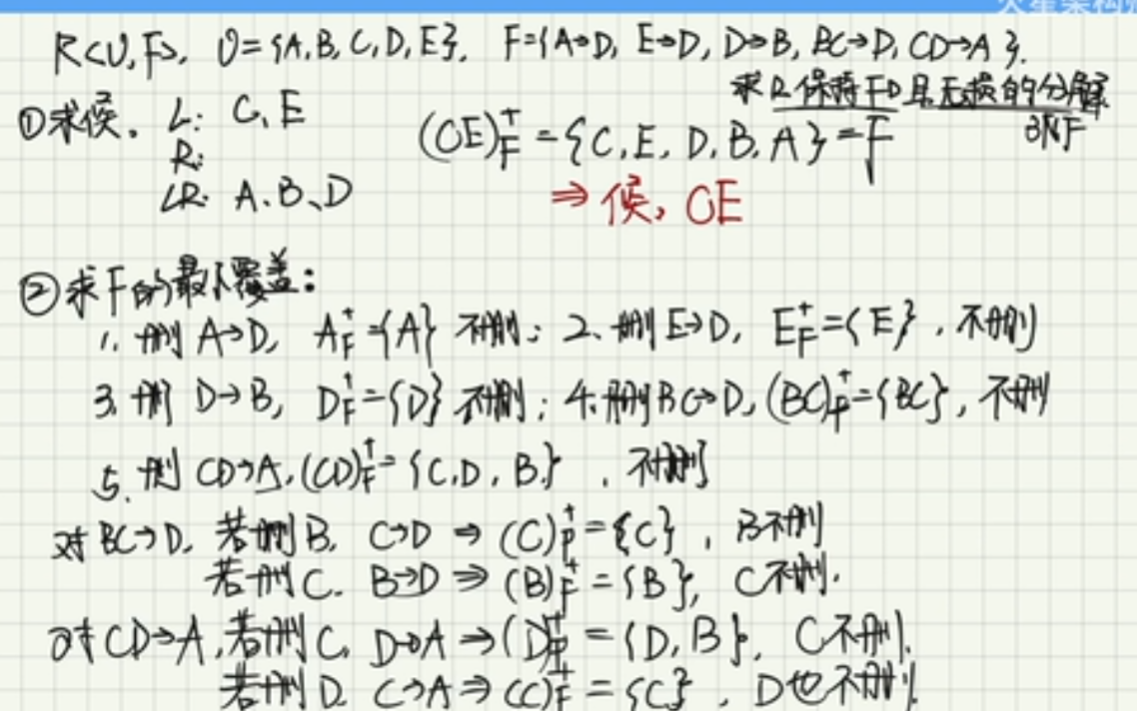 火星架构
R<U,F>, U={A,B,C,D,E}, F={A→D, E→D, D→B, BC→D, CD→A}.
求R保持FD且无损的分解
3NF
①求候。 L: C、E
R:
LR: A、B、D
(CE)F+ = {C,E,D,B,A} = F
⇒ 候。CE
②求F的最小覆盖:
1. 删A→D, AF+={A} 不删; 2、删E→D, EF+={E}, 不删
3. 删 D→B, DF+={D} 不删; 4.删BC→D, (BC)F+={BC}, 不删
5. 删 CD→A, (CD)F+={C,D,B}, 不删
对BC→D, 若删B, C→D ⇒ (C)F+={C}, B不删
若删C. B→D ⇒ (B)F+={B}, C不删.
对CD→A, 若删C, D→A ⇒ (D)F+={D,B}, C不删.
若删D. C→A ⇒ (C)F+={C}, D也不删.